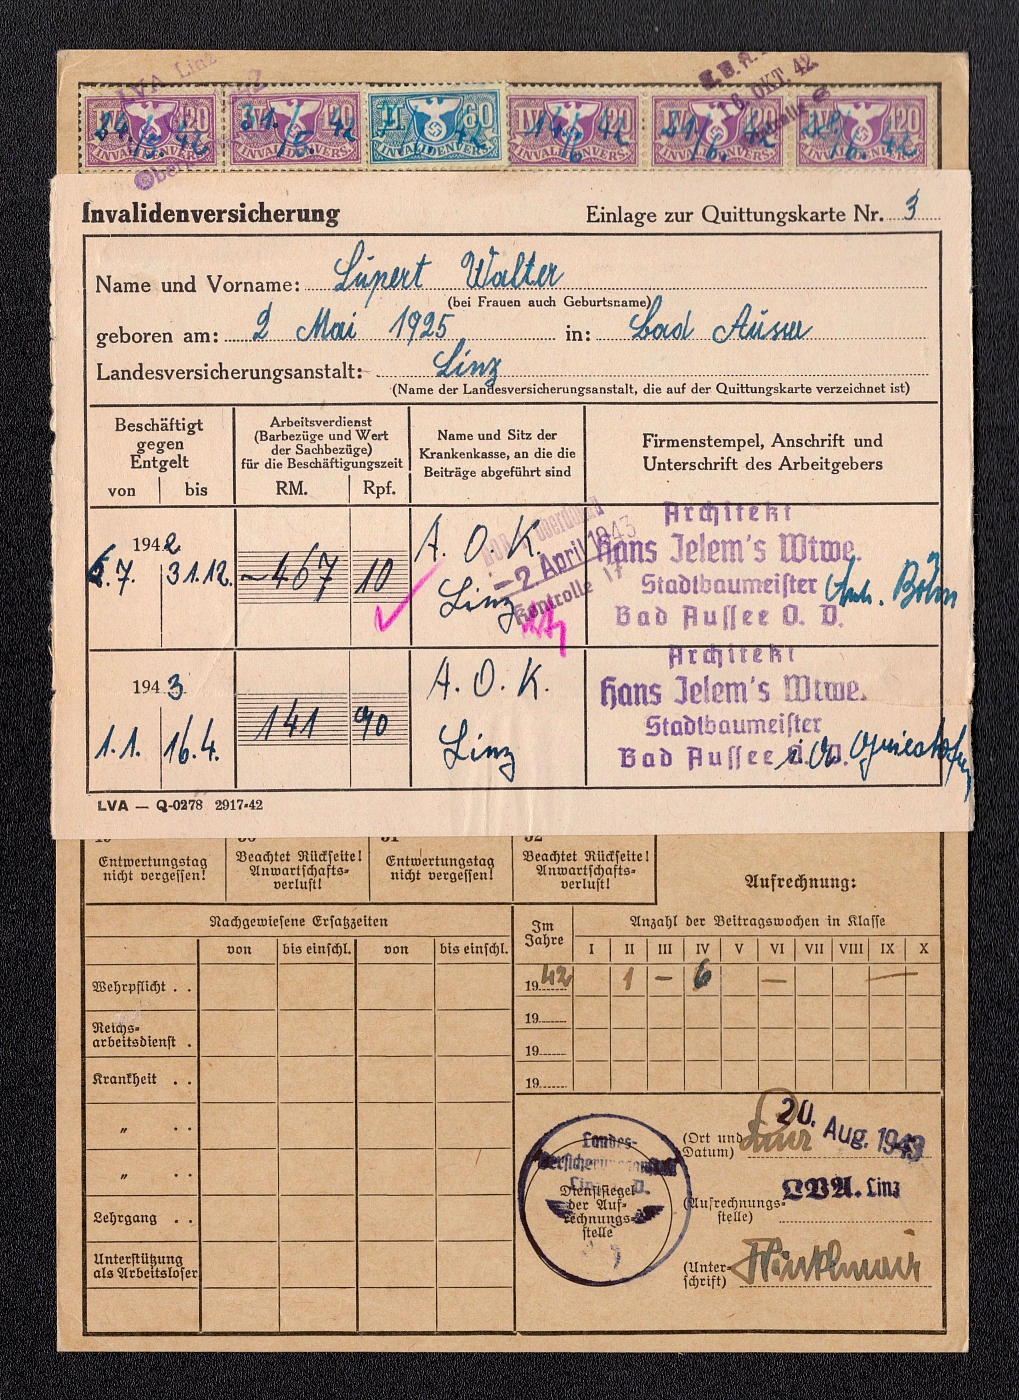 LVA Linz
16. OKT. 42
IV 120 II 60 IV 120 IV 120 IV 120
INVALIDENVERS. INVALIDENVERS. INVALIDENVERS. INVALIDENVERS. INVALIDENVERS. INVALIDENVERS.
Invalidenversicherung
Einlage zur Quittungskarte Nr. 3
Name und Vorname: Lupert Walter
(bei Frauen auch Geburtsname)
geboren am: 2 Mai 1925 in: Bad Aussee
Landesversicherungsanstalt: Linz
(Name der Landesversicherungsanstalt, die auf der Quittungskarte verzeichnet ist)
Beschäftigt gegen Entgelt
von bis
Arbeitsverdienst
(Barbezüge und Wert
der Sachbezüge)
für die Beschäftigungszeit
RM. Rpf.
Name und Sitz der
Krankenkasse, an die die
Beiträge abgeführt sind
Firmenstempel, Anschrift und
Unterschrift des Arbeitgebers
1942
6.7. 31.12. 467 10
A. O. K.
Linz
-2. April 1943
Kontrolle 17
Architekt
Hans Jelem's Wtwe.
Stadtbaumeister
Bad Aussee O. D.
Böhm
1943
1.1. 16.4. 141 90
A. O. K.
Linz
Architekt
Hans Jelem's Wtwe.
Stadtbaumeister
Bad Aussee O. D.
LVA — Q-0278 2917-42
Entwertungstag
nicht vergessen!
Beachtet Rückseite!
Anwartschafts-
verlust!
Entwertungstag
nicht vergessen!
Beachtet Rückseite!
Anwartschafts-
verlust!
Aufrechnung:
Nachgewiesene Ersatzzeiten
von bis einschl. von bis einschl.
Wehrpflicht . .
Reichs-
arbeitsdienst .
Krankheit . .
„ . .
„ . .
Lehrgang . .
Unterstützung
als Arbeitsloser
Im
Jahre
Anzahl der Beitragswochen in Klasse
I II III IV V VI VII VIII IX X
1942 1 — 6 — —
19
19
19
Landes-
versicherungsanstalt
Dienstsiegel
der Auf-
rechnungs-
stelle
(Ort und
Datum) Linz 20. Aug. 1943
(Aufrechnungs-
stelle) LVA. Linz
(Unter-
schrift)